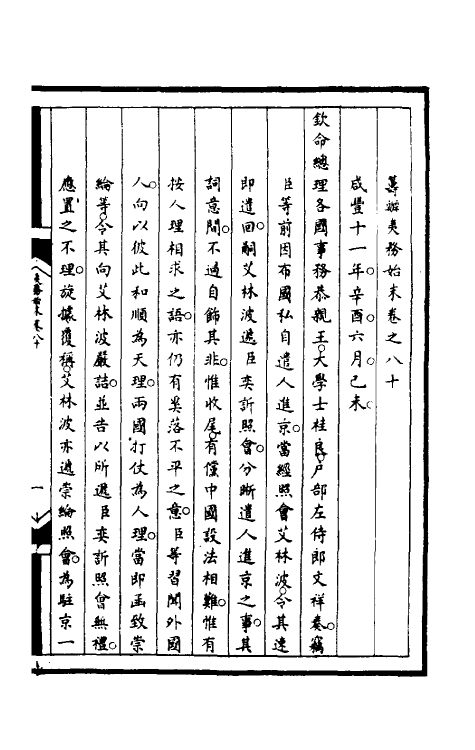 籌辦夷務始末卷之八十
咸豐十一年。辛酉。六月。己未。
欽命總理各國事務恭親王。大學士桂良。戶部左侍郎文祥奏。竊
臣等前因布國私自遣人進京。當經照會艾林波。令其速
即遣回。嗣艾林波遞臣奕訢照會。分晰遣人進京之事。其
詞意間。不過自飾其非。惟收尾。有儻中國設法相難。惟有
按人理相求之語。亦仍有奚落不平之意。臣等習聞外國
人。向以彼此和順為天理。兩國打仗為人理。當即函致崇
綸等。令其向艾林波嚴詰。並告以所遞臣奕訢照會無禮。
應置之不理。旋據覆稱。艾林波亦遞崇綸照會。為駐京一
夷務始末卷八十
一